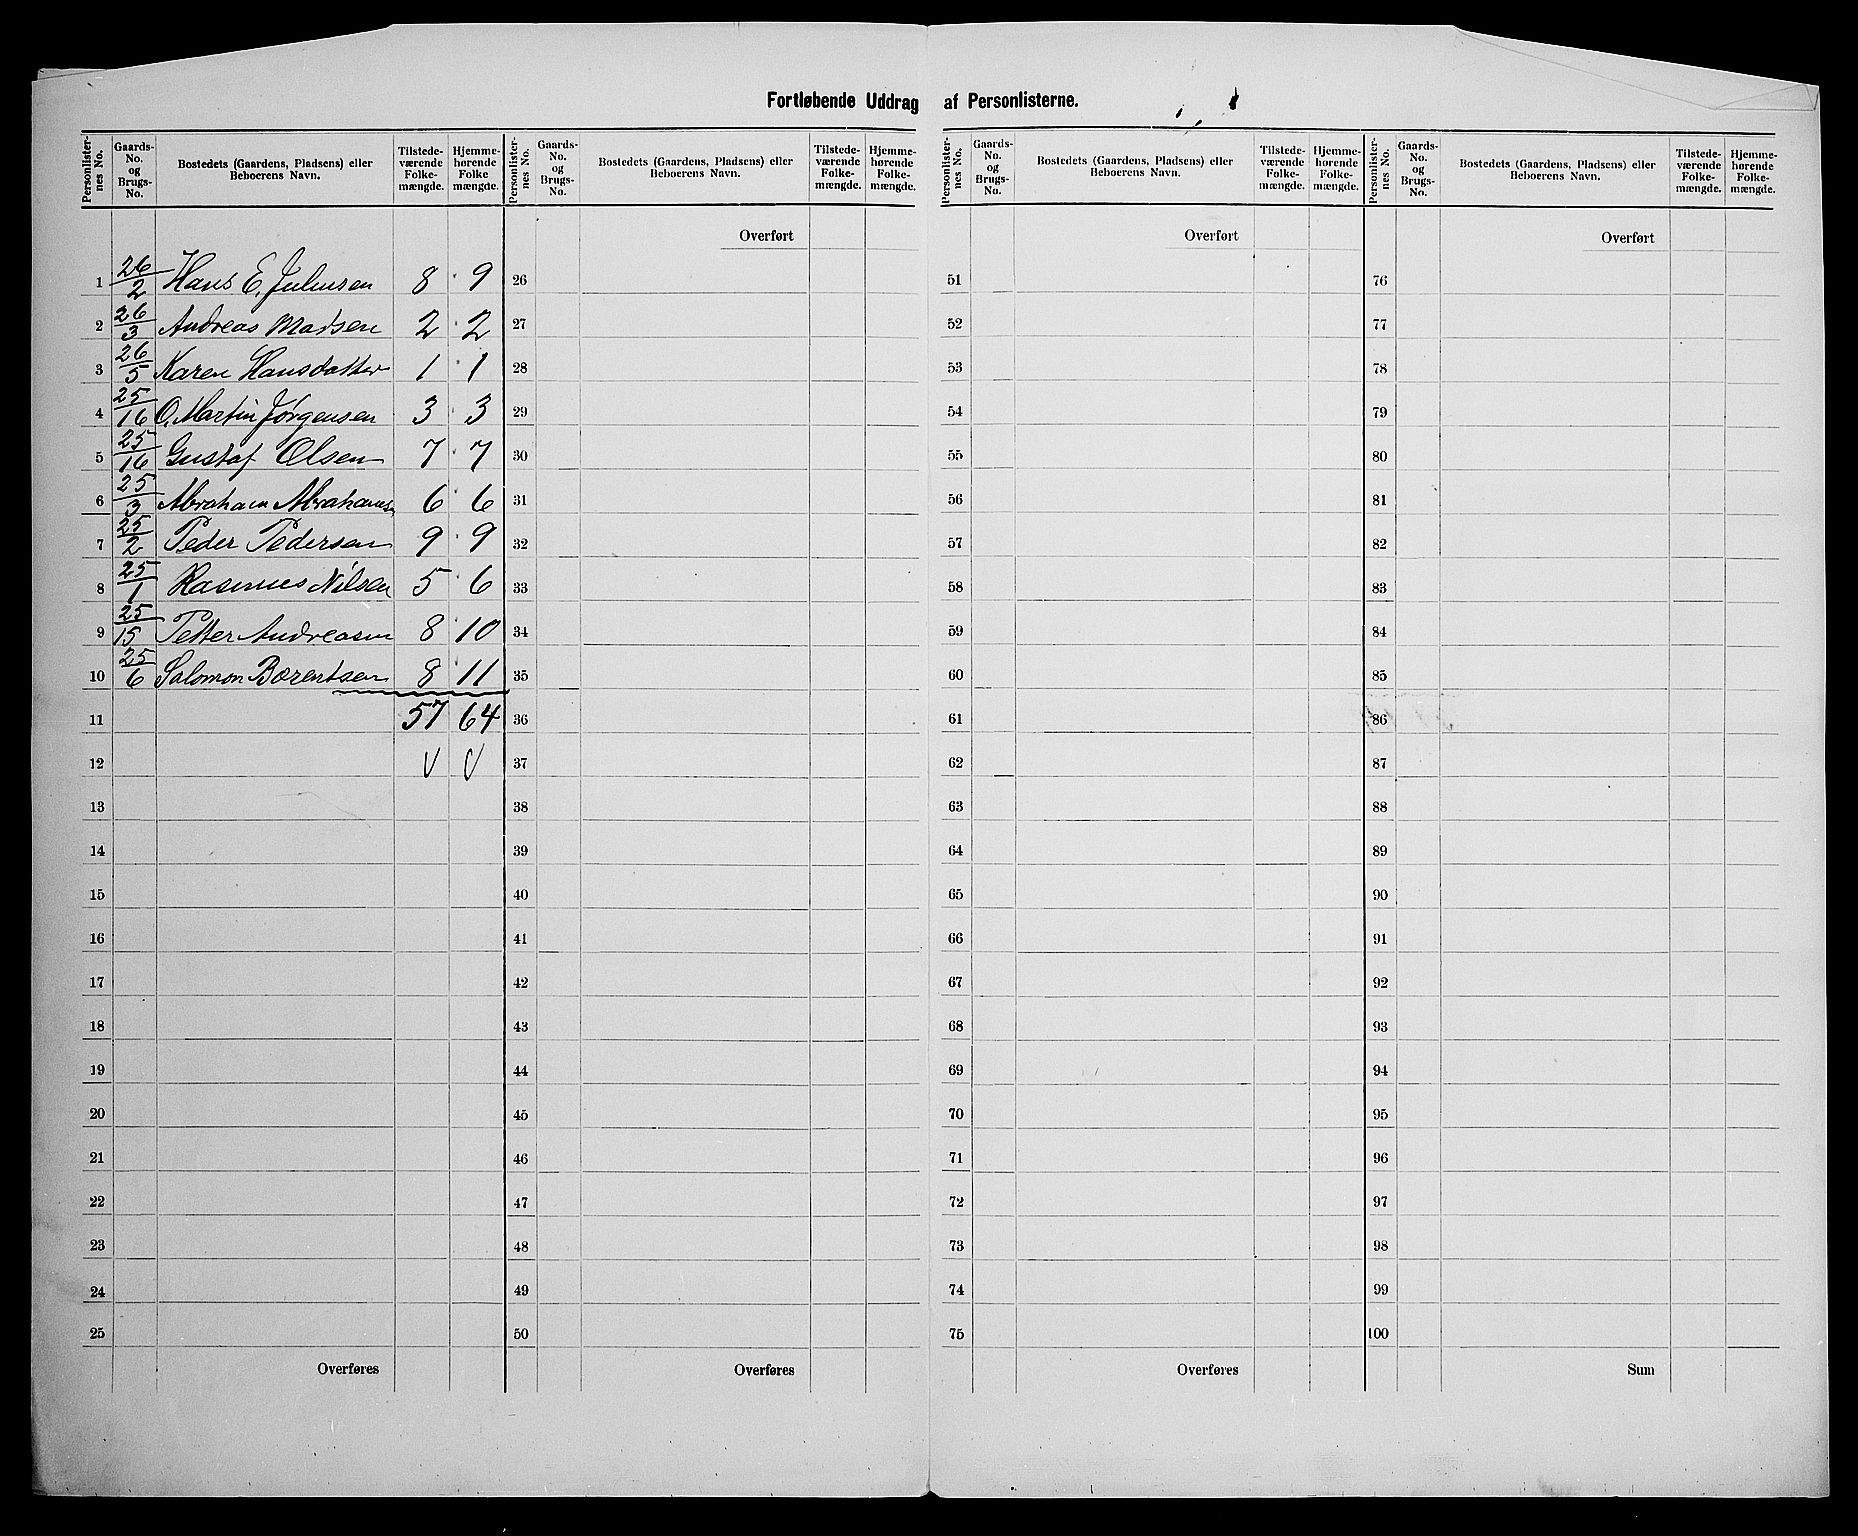 Fortløbende Uddrag af Personlisterne.
Personlister-nes No. | Gaards-No. og Brugs-No. | Bostedets (Gaardens, Pladsens) eller Beboerens Navn. | Tilstede-værende Folke-mængde. | Hjemme-hørende Folke mængde.
1 26/2 Hans E. Juliusen 8 9
2 26/3 Andreas Madsen 2 2
3 26/5 Karen Hansdatter 1 1
4 25/16 O. Martin Jørgensen 3 3
5 25/16 Gustaf Olsen 7 7
6 25/3 Abraham Abrahams 6 6
7 25/2 Peder Pedersen 9 9
8 25/1 Rasmus Nilsen 5 6
9 25/15 Petter Andreasen 8 10
10 25/6 Salomon Bærentsen 8 11
11 57 64
12 V V
13
14
15
16
17
18
19
20
21
22
23
24
25
Overføres
Personlister-nes No. | Gaards-No. og Brugs-No. | Bostedets (Gaardens, Pladsens) eller Beboerens Navn. | Tilstede-værende Folke-mængde. | Hjemme-hørende Folke-mængde.
Overført
26
27
28
29
30
31
32
33
34
35
36
37
38
39
40
41
42
43
44
45
46
47
48
49
50
Overføres
Personlister-nes No. | Gaards-No. og Brugs-No. | Bostedets (Gaardens, Pladsens) eller Beboerens Navn. | Tilstede-værende Folke-mængde. | Hjemme-hørende Folke-mængde.
Overført
51
52
53
54
55
56
57
58
59
60
61
62
63
64
65
66
67
68
69
70
71
72
73
74
75
Overføres
Personlister-nes No. | Gaards-No. og Brugs-No. | Bostedets (Gaardens, Pladsens) eller Beboerens Navn. | Tilstede-værende Folke-mængde. | Hjemme-hørende Folke-mængde.
Overført
76
77
78
79
80
81
82
83
84
85
86
87
88
89
90
91
92
93
94
95
96
97
98
99
100
Sum